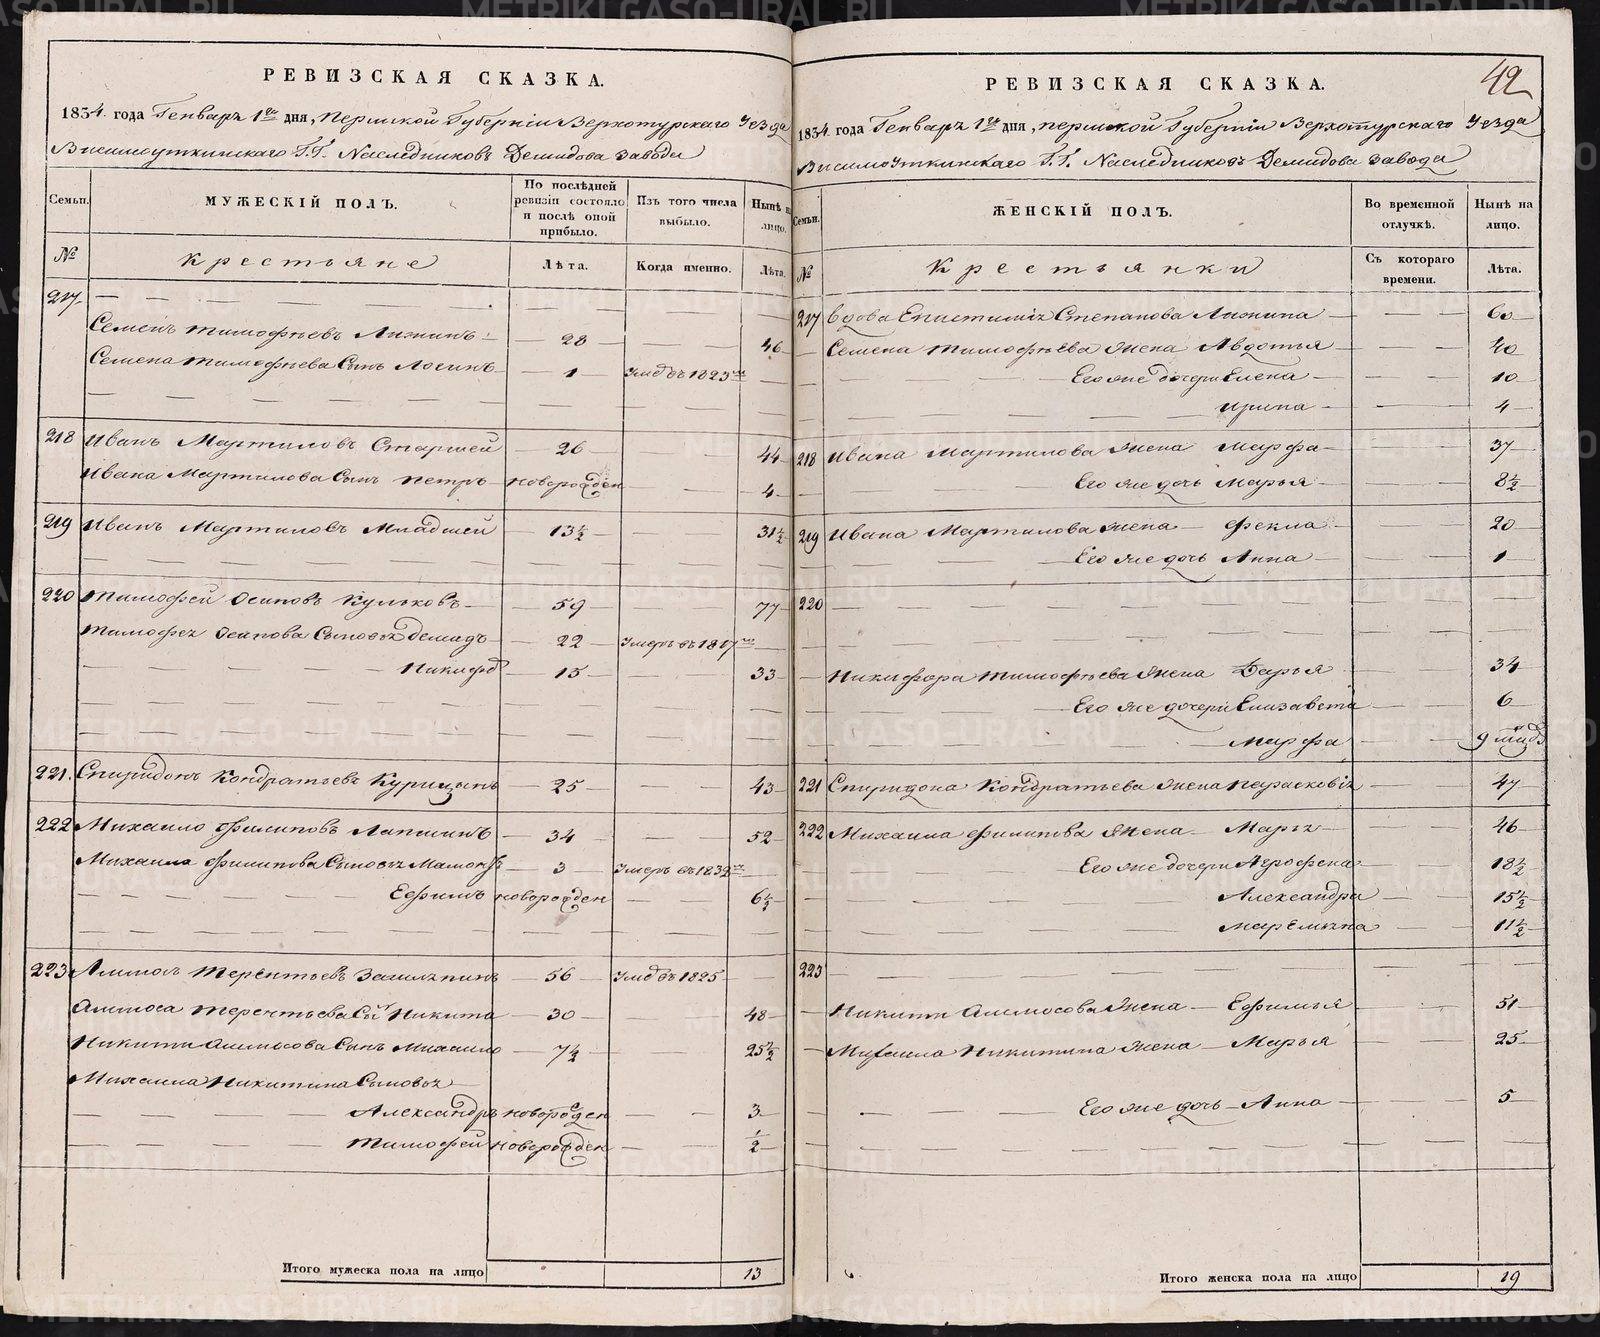 РЕВИЗСКАЯ СКАЗКА.
1834 года Генваря 1го дня, Пермской Губернiи Верхотурскаго Уезда
Висимоуткинскаго Г.Г. Наследниковъ Демидова завода
Семьи. МУЖЕСКIЙ ПОЛЪ. По послѣдней ревизiи состояло и послѣ оной прибыло. Изъ того числа выбыло. Нынѣ на лицо.
№ Крестьяне Лѣта. Когда именно. Лѣта.
217
Семенъ Тимофѣевъ 28 46
Семена Тимофѣева Сынъ 1 1823го
218 Иванъ Мартиловъ Старшей 26 44
Ивана Мартилова Сынъ Петръ новорожден 4
219 Иванъ Мартиловъ Младшей 13½ 31½
220 Тимофей Осиповъ Кульковъ 59 77
Тимофея Осипова Сыновья Демидъ 22 Умеръ въ 1817го
Никифоръ 15 33
221. Спиридонъ Кондратьевъ Курицынъ 25 43
222 Михаило Филиповъ Лапшинъ 34 52
Михаила Филипова Сыновья 3 Умеръ въ 1832го
Ефимъ новорожден 6½
223 Терентьевъ 56 въ 1825
Терентьева Сынъ Никита 30 48
Никиты Сынъ Михаило 7½ 25½
Михаила Никитина Сыновья
Александръ новорожден 3
Тимофей новорожден ½
Итого мужеска пола на лицо 13
42
РЕВИЗСКАЯ СКАЗКА.
1834 года Генваря 1го дня, Пермской Губернiи Верхотурскаго Уезда
ВисимоУткинскаго Г.Г. Наследниковъ Демидова завода
Семьи. ЖЕНСКIЙ ПОЛЪ. Во временной отлучкѣ. Нынѣ на лицо.
№ Крестьянки Съ котораго времени. Лѣта.
217 Вдова Епистимiя Степанова 60
Семена Тимофѣева жена Авдотья 40
Его же дочери Елена 10
Ирина 4
218 Ивана Мартилова жена Марфа 37
Его же дочь Марья 8½
219 Ивана Мартилова жена Фекла 20
Его же дочь Анна 1
220
Никифора Тимофѣева жена Дарья 34
Его же дочери Елизавета 6
Марфа 9
221 Спиридона Кондратьева жена Парасковiя 47
222 Михаила Филипова жена Марья 46
Его же дочери Агрофена 18½
Александра 15½
Маремьяна 11½
223
Никиты жена Ефимья 51
Михаила Никитина жена Марья 25
Его же дочь Анна 5
Итого женска пола на лицо 19
METRIKI.GASO-URAL.RU